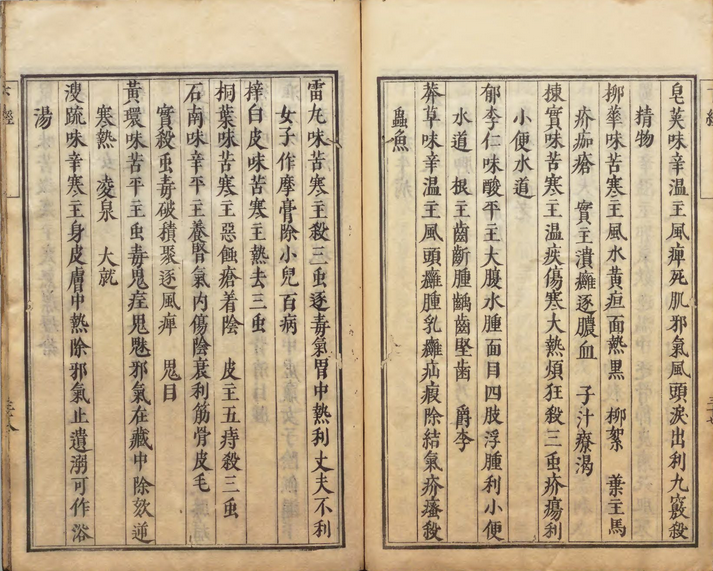 皂莢味辛溫主風痺死肌邪氣風頭淚出利九竅殺
精物
柳華味苦寒主風水黃疸面熱黑 柳絮 葉主馬
疥痂瘡 實主潰癰逐膿血 子汁療渴
楝實味苦寒主温疾傷寒大熱煩狂殺三虫疥瘍利
小便水道
郁李仁味酸平主大腹水腫面目四肢浮腫利小便
水道 根主齒齗腫齲齒堅齒 爵李
莽草味辛溫主風頭癰腫乳癰疝瘕除結氣疥瘙殺
蟲魚
雷丸味苦寒主殺三虫逐毒氣胃中熱利丈夫不利
女子作摩膏除小兒百病
梓白皮味苦寒主熱去三虫
桐葉味苦寒主惡蝕瘡着陰 皮主五痔殺三虫
石南味辛平主養腎氣內傷陰衰利筋骨皮毛
實殺虫毒破積聚逐風痺 鬼目
黃環味苦平主虫毒鬼疰鬼魅邪氣在藏中除欬逆
寒熱 凌泉 大就
溲疏味辛寒主身皮膚中熱除邪氣止遺溺可作浴
湯